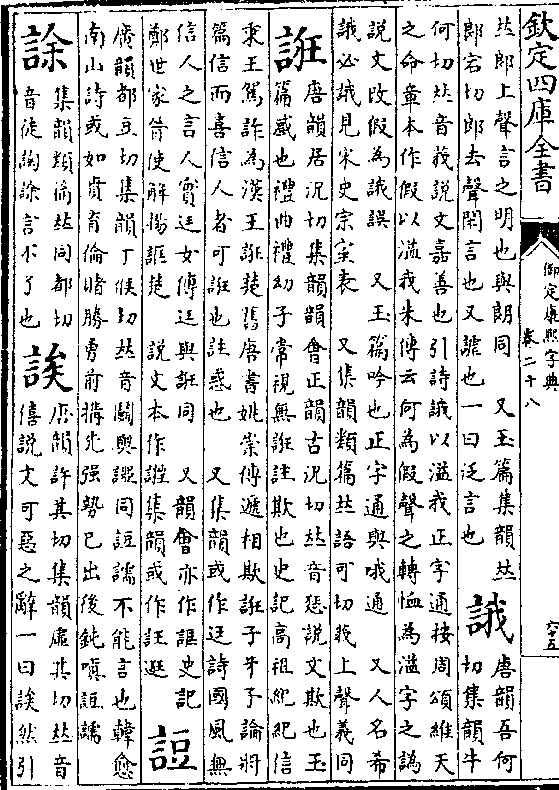 欽定四庫全書
御定康熙字典
卷二十八
六十五
𠀤郎上聲言之明也與朗同　又玉篇集韻𠀤
郎宕切郎去聲閑言也又謔也一曰泛言也
誐
唐韻吾何
切集韻牛
何切𠀤音莪說文嘉善也引詩誐以溢我正字通按周頌維天
之命章本作假以溢我朱傳云何為假聲之轉恤為溢字之譌
說文改假為誐誤　又玉篇吟也正字通與哦通　又人名希
誐必誐見宋史宗室表　又集韻類篇𠀤語可切我上聲義同
誑
唐韻居況切集韻韻會正韻古況切𠀤音說文欺也玉
篇惑也禮曲禮幼子常視無誑註欺也史記高祖紀紀信
乘王駕詐為漢王誑楚舊唐書姚崇傳遞相欺誑子牙子論將
篇信而喜信人者可誑也註惑也　又集韻或作迋詩國風無
信人之言人實迋女傳迋與誑同　又韻會亦作誆史記
鄭世家晉使解揚誆楚　說文本作集韻或作
䛠
廣韻都豆切集韻丁候切𠀤音鬬與同䛠譳不能言也韓愈
南山詩或如賁育倫賭勝勇前購先强勢已出後鈍嗔䛠譳
䛡
集韻類篇𠀤同都切
音徒䛡言不了也
誒
唐韻許其切集韻虛其切𠀤音
僖說文可惡之辭一曰誒然引